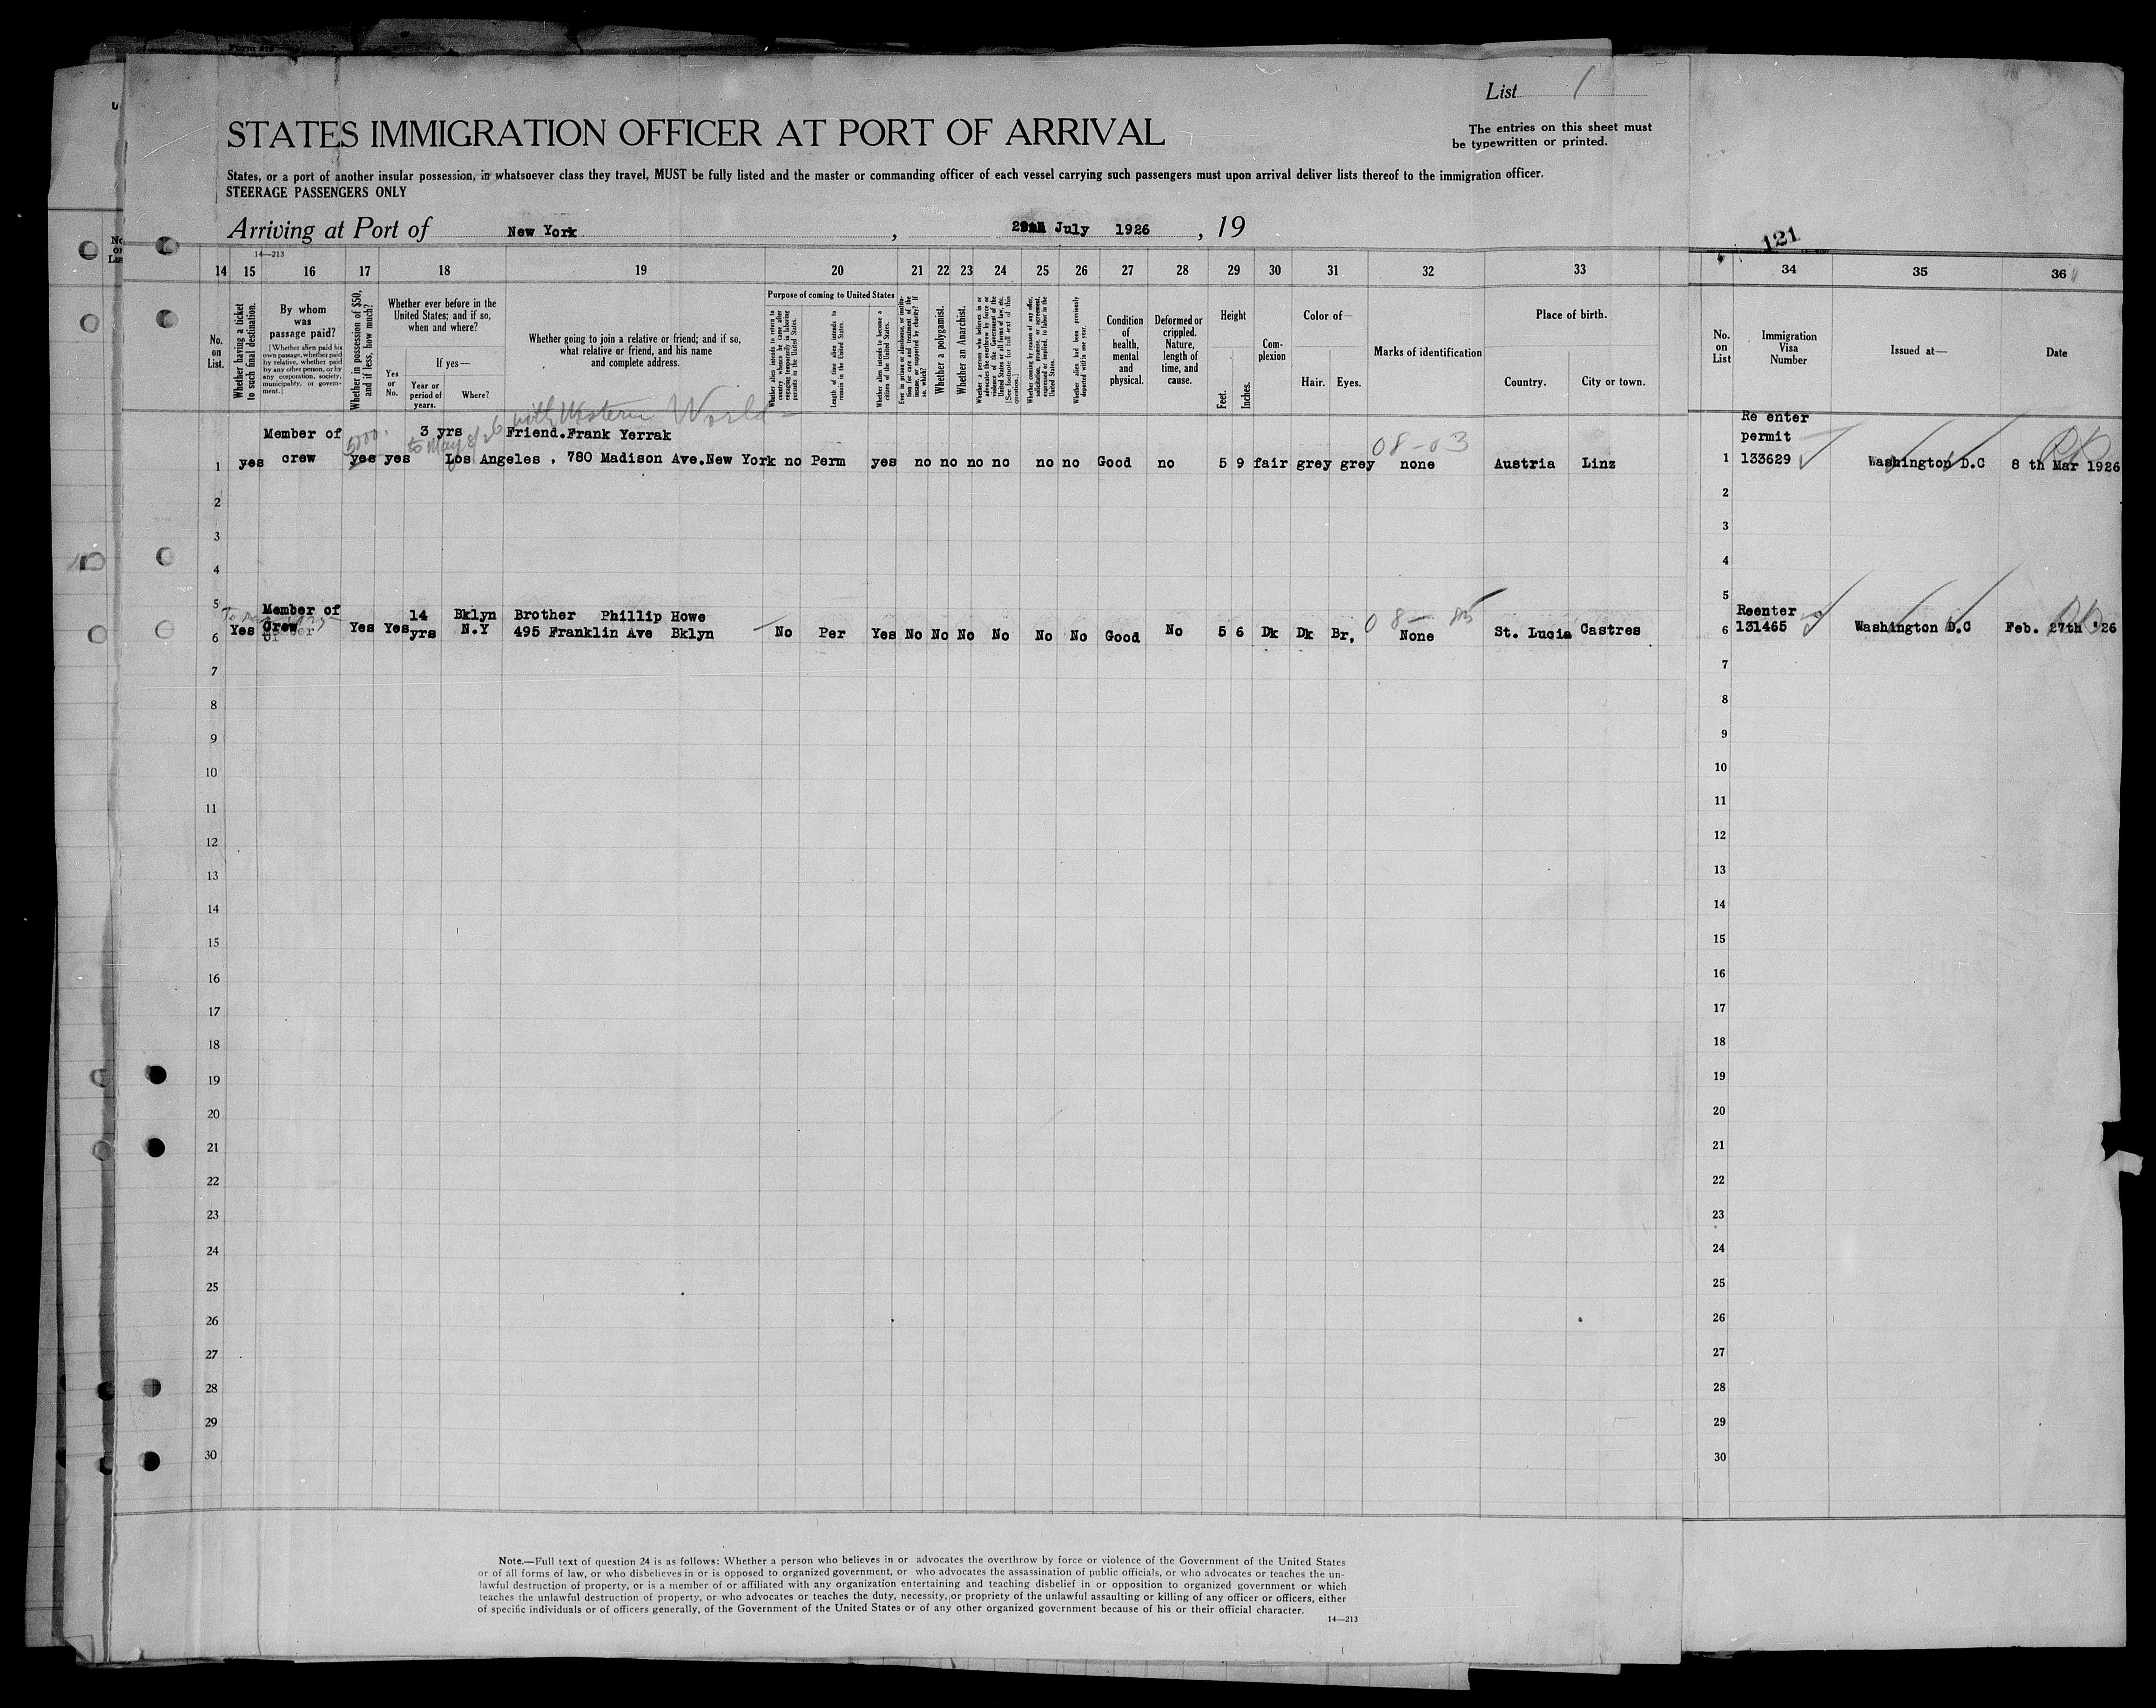 List 1
STATES IMMIGRATION OFFICER AT PORT OF ARRIVAL
The entries on this sheet must
be typewritten or printed.
States, or a port of another insular possession, in whatsoever class they travel, MUST be fully listed and the master or commanding officer of each vessel carrying such passengers must upon arrival deliver lists thereof to the immigration officer.
STEERAGE PASSENGERS ONLY
Arriving at Port of New York, July 1926, 19
121
14—213
14 15 16 17 18 19 20 21 22 23 24 25 26 27 28 29 30 31 32 33 34 35 36
No. on List.
Whether having a ticket to such final destination.
By whom was passage paid?
[Whether alien paid his own passage, whether paid by relative, whether paid by any other person, or by any corporation, society, municipality, or government.]
Whether in possession of $50, and if less, how much?
Whether ever before in the United States; and if so, when and where?
Yes or No.
If yes—
Year or period of years.
Where?
Whether going to join a relative or friend; and if so, what relative or friend, and his name and complete address.
Purpose of coming to United States
Whether alien intends to return to country whence he came after engaging temporarily in laboring pursuits in the United States.
Length of time alien intends to remain in the United States.
Whether alien intends to become a citizen of the United States.
Ever in prison or almshouse, or institution for care and treatment of the insane, or supported by charity? If so, which?
Whether a polygamist.
Whether an Anarchist.
Whether a person who believes in or advocates the overthrow by force or violence of the Government of the United States or all forms of law, etc. [See footnote for full text of this question.]
Whether coming by reason of any offer, solicitation, promise, or agreement, expressed or implied, to labor in the United States.
Whether alien had been previously deported within one year.
Condition of health, mental and physical.
Deformed or crippled. Nature, length of time, and cause.
Height
Feet. Inches.
Complexion
Color of—
Hair. Eyes.
Marks of identification
Place of birth.
Country. City or town.
No. on List
Immigration Visa Number
Issued at—
Date
with Western World
Member of 5000. 3 yrs to May 8/26 Friend.Frank Yerrak 08-03 Re enter
permit
1 yes crew yes yes Los Angeles , 780 Madison Ave.New York no Perm yes no no no no no no Good no 5 9 fair grey grey none Austria Linz 1 133629 Washington D.C 8 th Mar 1926
2 2
3 3
4 4
5 Member of 14 Bklyn Brother Phillip Howe 08-85 5 Reenter
6 Yes Crew Yes Yes yrs N.Y 495 Franklin Ave Bklyn No Per Yes No No No No No No Good No 5 6 Dk Dk Br, None St. Lucia Castres 6 131465 Washington D.C Feb. 27th '26
7 7
8 8
9 9
10 10
11 11
12 12
13 13
14 14
15 15
16 16
17 17
18 18
19 19
20 20
21 21
22 22
23 23
24 24
25 25
26 26
27 27
28 28
29 29
30 30
Note.—Full text of question 24 is as follows: Whether a person who believes in or advocates the overthrow by force or violence of the Government of the United States
or of all forms of law, or who disbelieves in or is opposed to organized government, or who advocates the assassination of public officials, or who advocates or teaches the un-
lawful destruction of property, or is a member of or affiliated with any organization entertaining and teaching disbelief in or opposition to organized government or which
teaches the unlawful destruction of property, or who advocates or teaches the duty, necessity, or propriety of the unlawful assaulting or killing of any officer or officers, either
of specific individuals or of officers generally, of the Government of the United States or of any other organized government because of his or their official character.
14—213